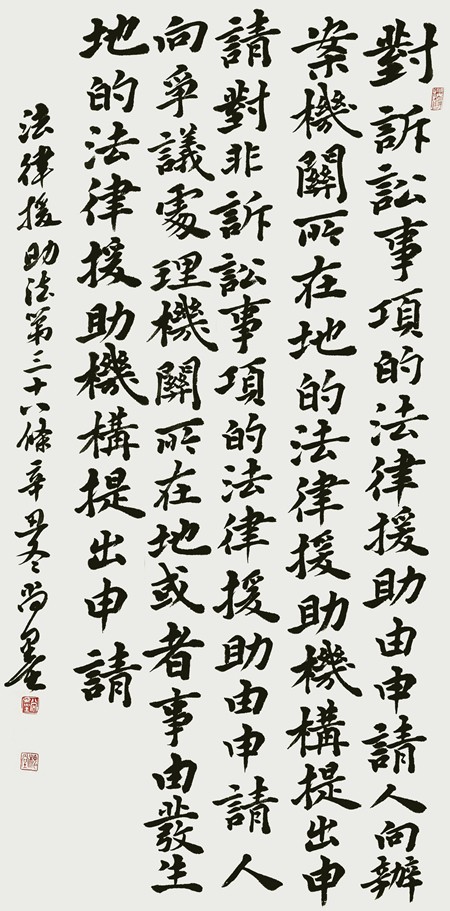 對訴訟事項的法律援助由申請人向辦
案機關所在地的法律援助機構提出申
請對非訴訟事項的法律援助由申請人
向爭議處理機關所在地或者事由發生
地的法律援助機構提出申請
法律援助法第三十八條辛丑冬尚墨